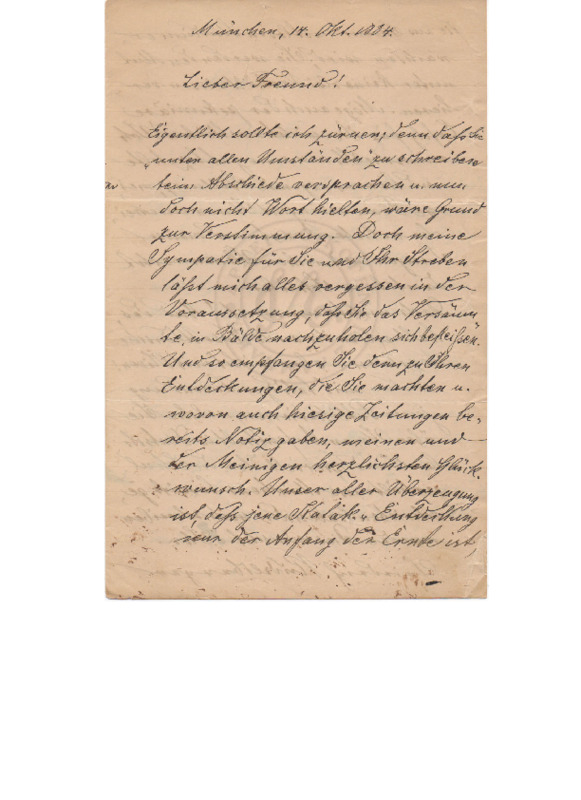 München, 14. Okt. 1884.
Lieber Freund!
Eigentlich sollte ich zürnen; denn daß Sie
„unter allen Umständen" zu schreiben
beim Abschiede versprachen u. nun
doch nicht Wort hielten, wäre Grund
zur Verstimmung. Doch meine
Sympatie für Sie und Ihr Streben
läßt mich alles vergessen in der
Voraussetzung, daß Sie das Versäum
te, in Bälde nachzuholen sich befleißen.
Und so empfangen Sie denn zu Ihren
Entdeckungen, die Sie machten u.
wovon auch hiesige Zeitungen be-
reits Notiz gaben, meinen und
der Meinigen herzlichsten Glück-
wunsch. Unser aller Überzeugung
ist, daß jene Entdeckung
nur der Anfang der Ernte ist,